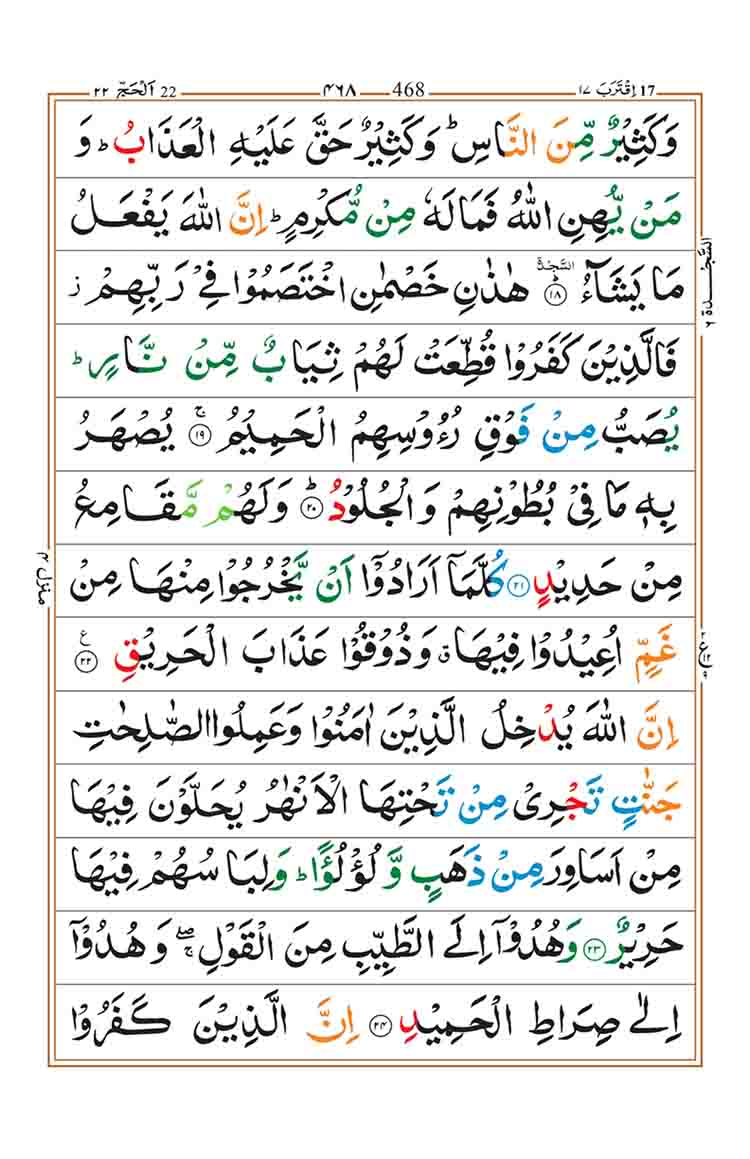 اِقْتَرَبَ ١٧ 17 468 ٤٦٨ 22 اَلْحَجّ ٢٢
وَكَثِيْرٌ مِّنَ النَّاسِ ؕ وَكَثِيْرٌ حَقَّ عَلَيْهِ الْعَذَابُ ؕ وَ
مَنْ يُّهِنِ اللّٰهُ فَمَا لَهٗ مِنْ مُّكْرِمٍ ؕ اِنَّ اللّٰهَ يَفْعَلُ
مَا يَشَآءُ ۩ ﴿۱۸﴾ السَّجْدَة هٰذٰنِ خَصْمٰنِ اخْتَصَمُوْا فِيْ رَبِّهِمْ ز
فَالَّذِيْنَ كَفَرُوْا قُطِّعَتْ لَهُمْ ثِيَابٌ مِّنْ نَّارٍ ؕ
يُصَبُّ مِنْ فَوْقِ رُءُوْسِهِمُ الْحَمِيْمُ ۚ ﴿۱۹﴾ يُصْهَرُ
بِهٖ مَا فِيْ بُطُوْنِهِمْ وَالْجُلُوْدُ ؕ ﴿۲۰﴾ وَلَهُمْ مَّقَامِعُ
مِنْ حَدِيْدٍ ﴿۲۱﴾ كُلَّمَآ اَرَادُوْٓا اَنْ يَّخْرُجُوْا مِنْهَا مِنْ
غَمٍّ اُعِيْدُوْا فِيْهَا ۗ وَذُوْقُوْا عَذَابَ الْحَرِيْقِ ﴿۲۲﴾ ع
اِنَّ اللّٰهَ يُدْخِلُ الَّذِيْنَ اٰمَنُوْا وَعَمِلُوا الصّٰلِحٰتِ
جَنّٰتٍ تَجْرِيْ مِنْ تَحْتِهَا الْاَنْهٰرُ يُحَلَّوْنَ فِيْهَا
مِنْ اَسَاوِرَ مِنْ ذَهَبٍ وَّلُؤْلُؤًا ؕ وَلِبَاسُهُمْ فِيْهَا
حَرِيْرٌ ﴿۲۳﴾ وَهُدُوْٓا اِلَى الطَّيِّبِ مِنَ الْقَوْلِ ۖۚ وَهُدُوْٓا
اِلٰى صِرَاطِ الْحَمِيْدِ ﴿۲۴﴾ اِنَّ الَّذِيْنَ كَفَرُوْا
السَّجْدة ٦
منزل ٤